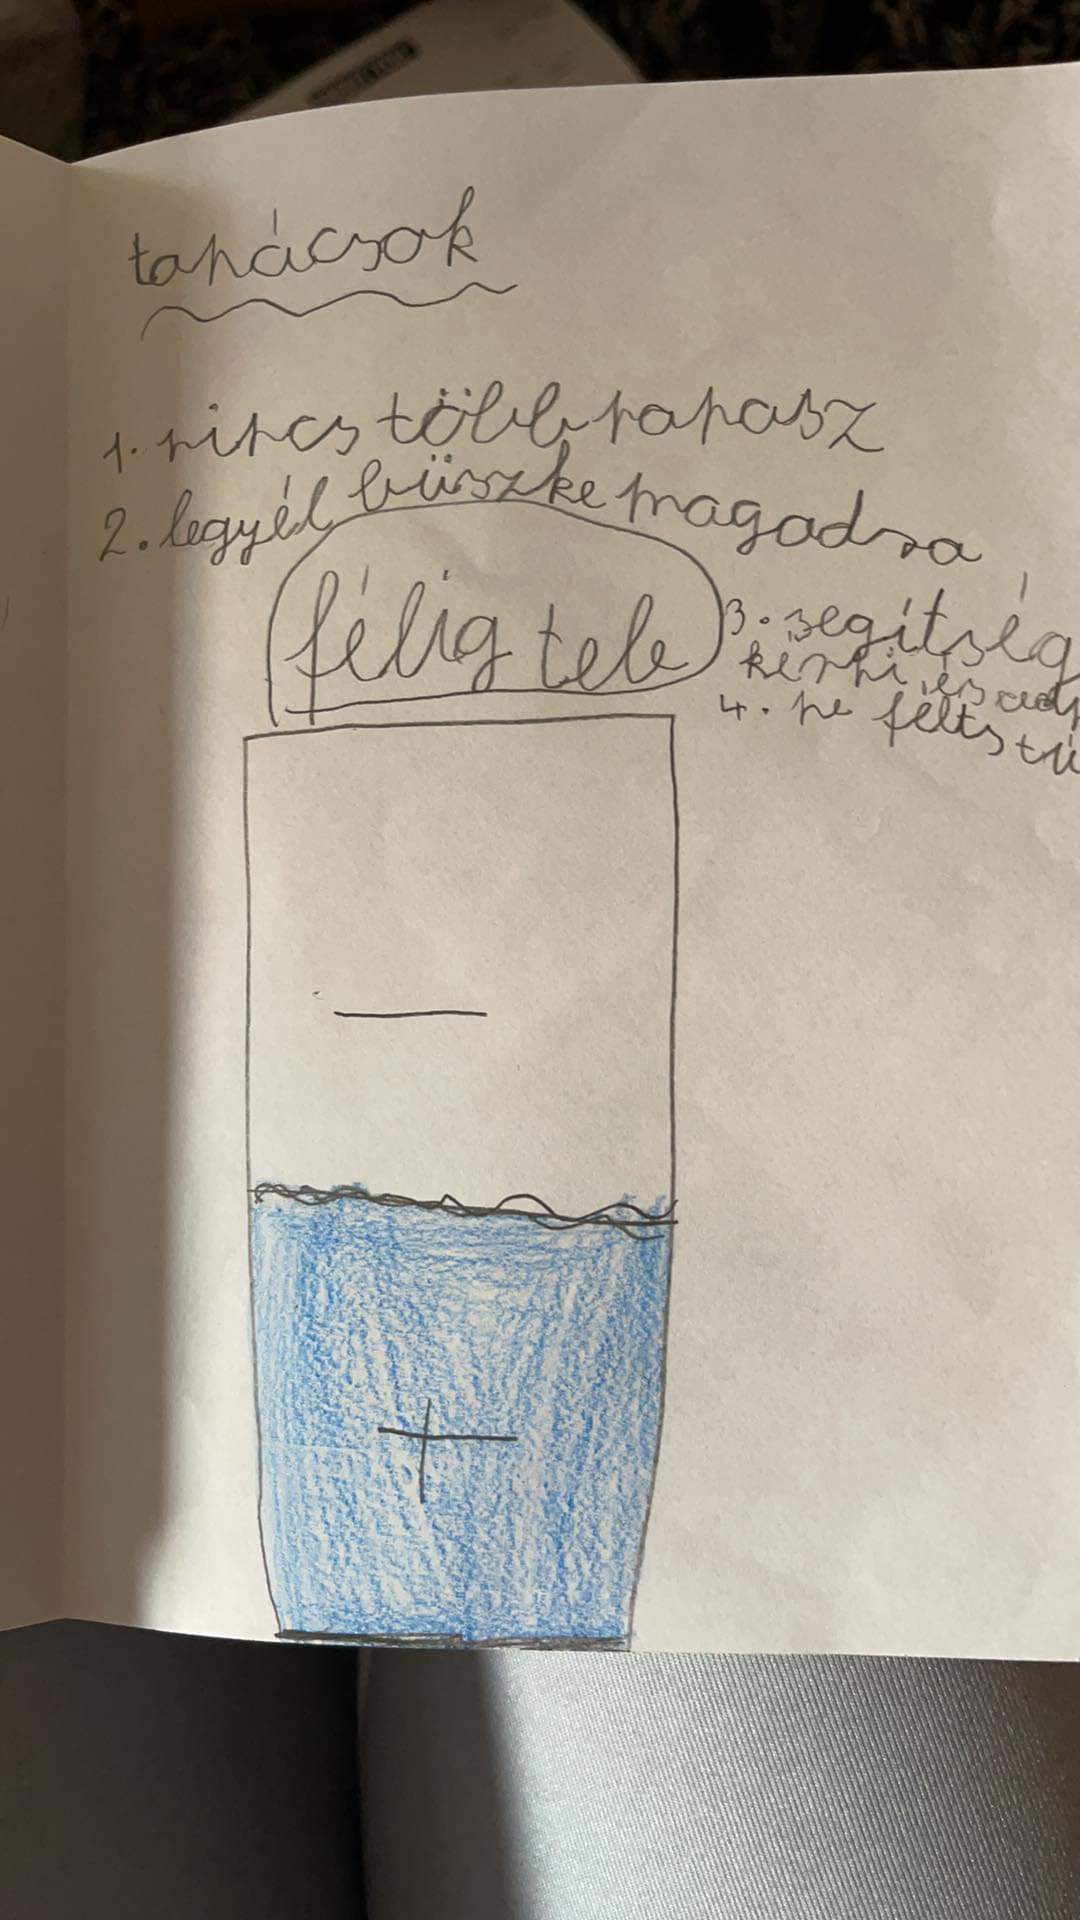 tanácsok
1. nincs több panasz
2. legyél büszke magadra
félig tele
3. segítség
kérni és
4. ne félts